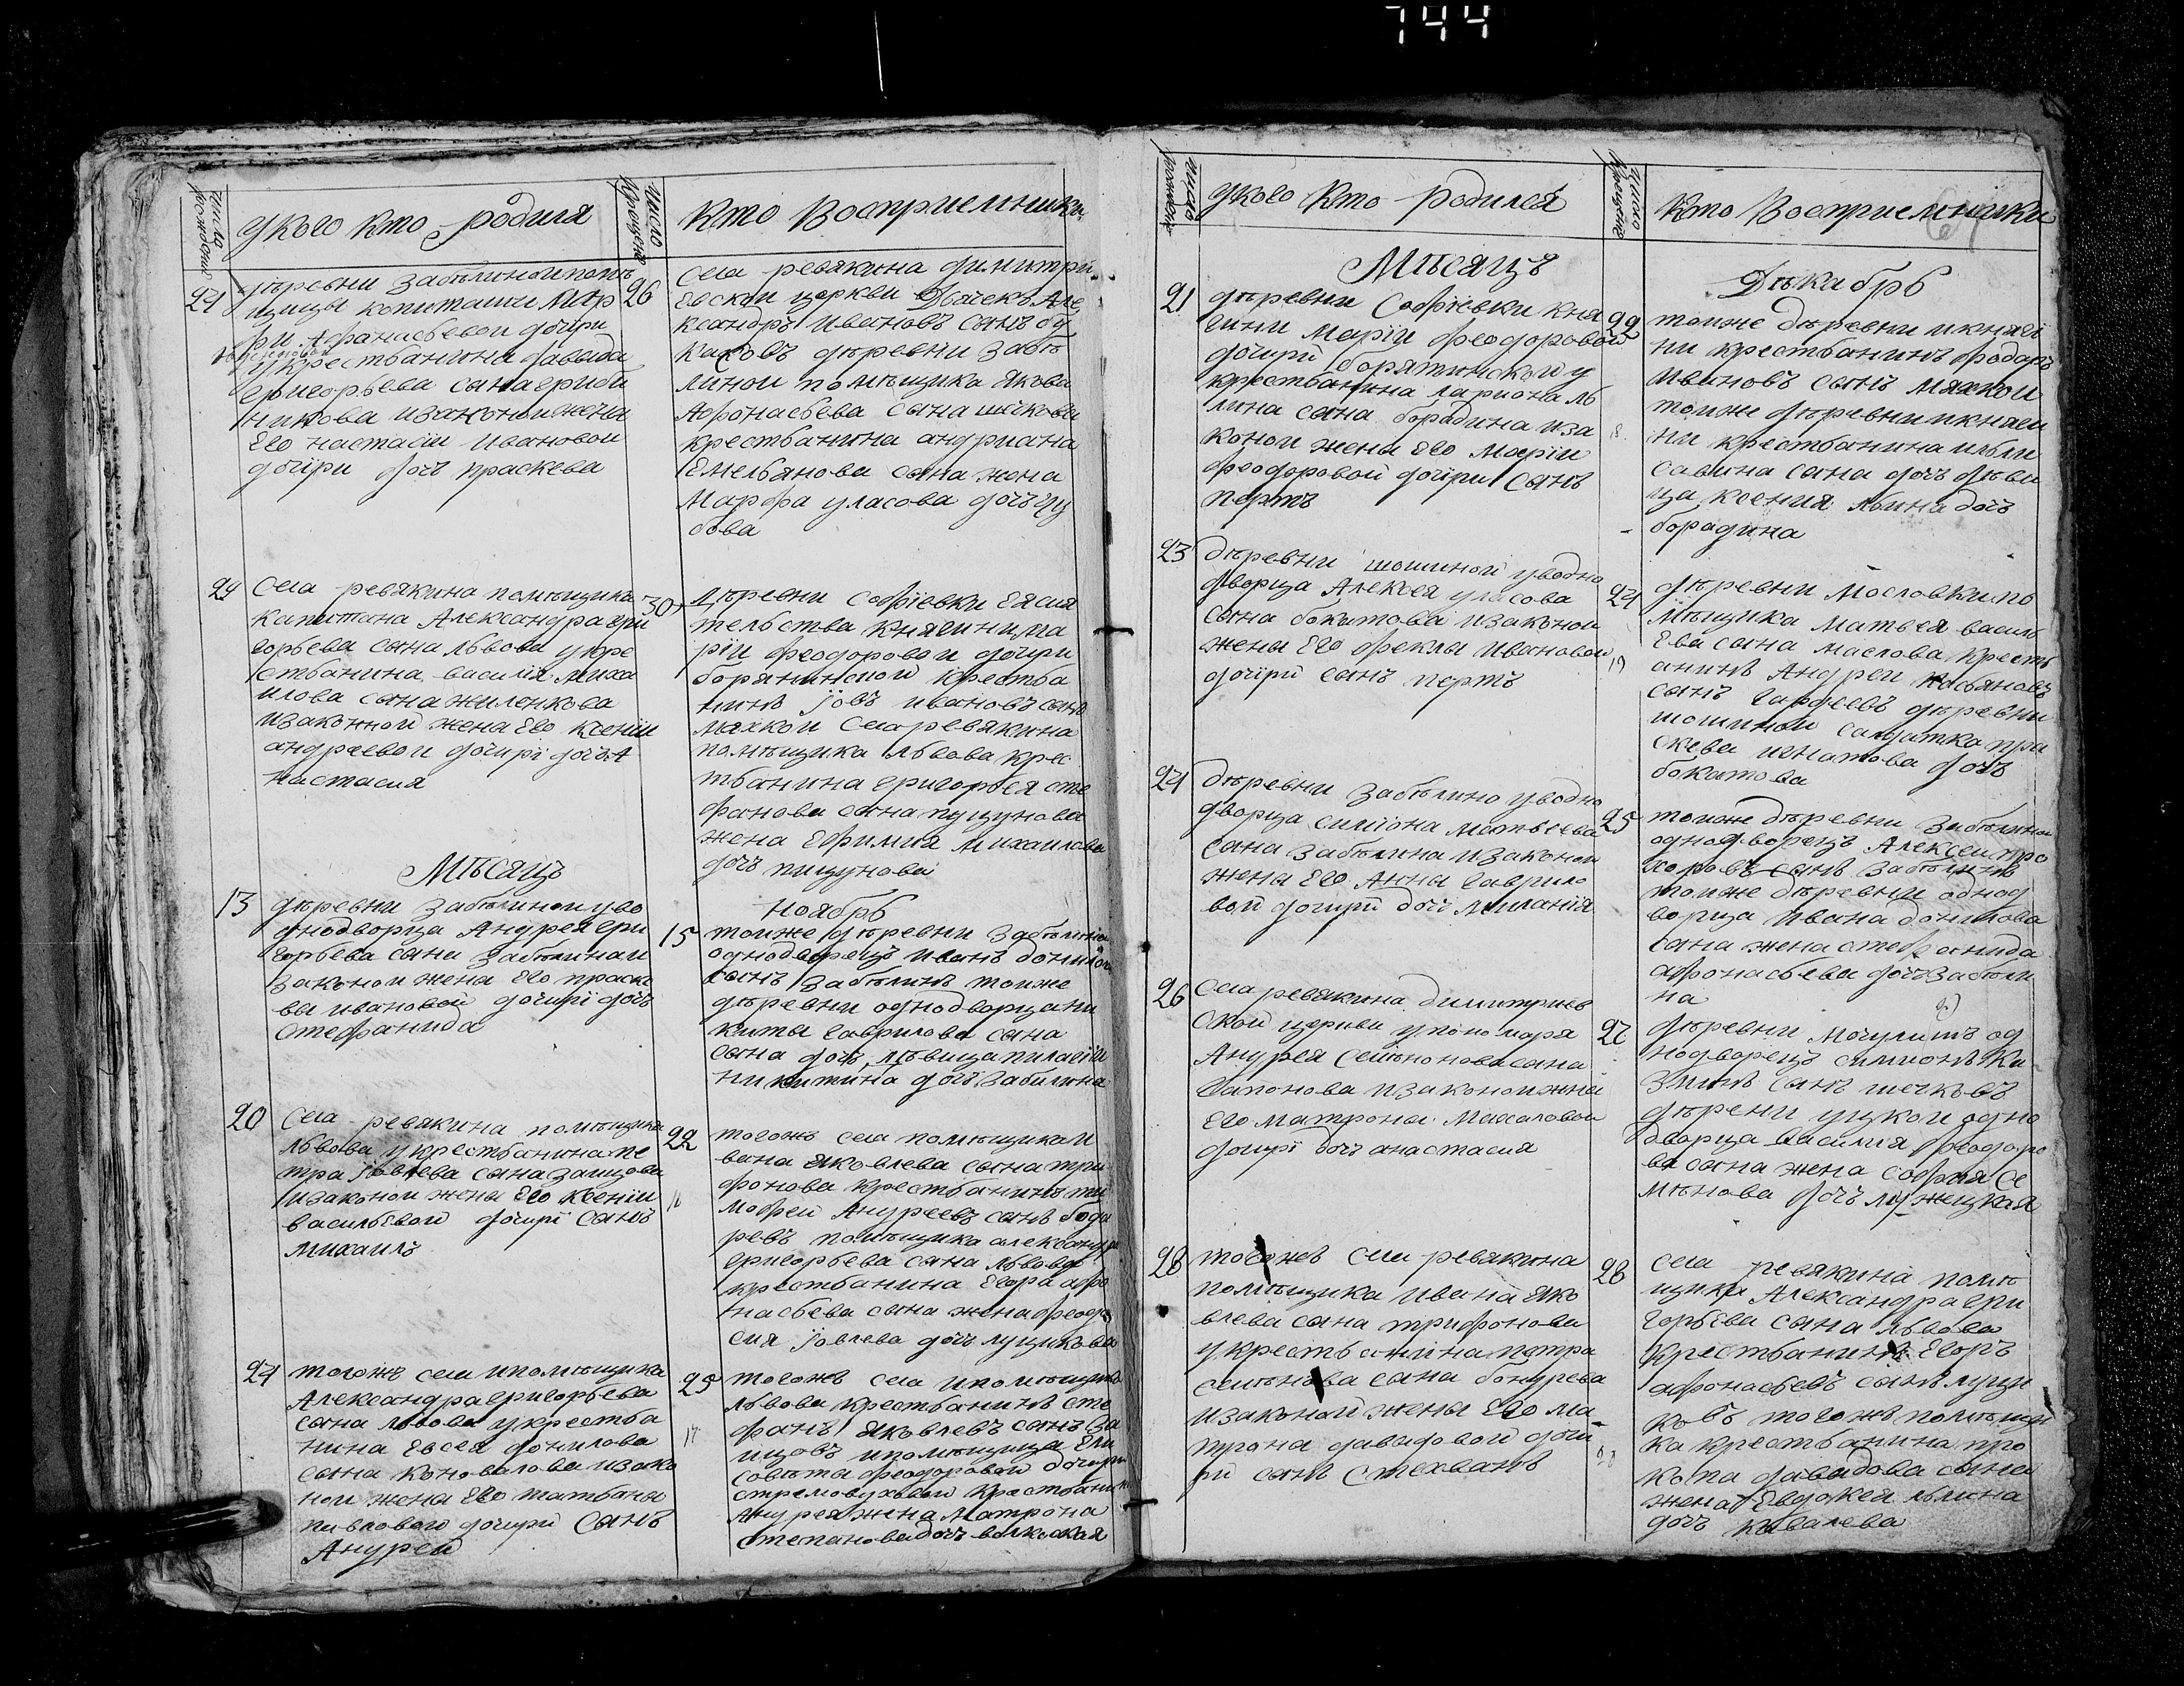 744
число рождения
У кого кто родился
число крещения
Кто Восприемники
24
деревни Забелиной поме
щицы Капитанши Мар
фи Афанасьевой дочери
у крестьянина Давида
Григорьева сына гриби
никова и законной жены
Его Настасіи Ивановой
дочери дочь Праскева
26
села ревякина Димитрі
Евской церкви Дьячекъ Але
ксандръ Ивановъ сынъ бу
каковъ деревни Забе
линой помещика Якова
Афонасьева сына шикова
крестьянина андриана
Емельянова сына жена
Марфа уласова дочь
бова
29
Села ревякина помещика
Капитана Александра гри
горьева сына львова у кре
стьянина василія миха
илова сына жиленкова
и законной жена Его Ксеніи
андреевой дочирі дочь А
настасия
30
Деревни Софіевки Сия
тельства Княгини Ма
ріи феодоровои дочири
борятинской крестья
нинъ Іовъ ивановъ сынъ
мяхкои Села ревякина
помещика львова крес
тьянина григорья сте
фанова сына пищунова
жена Ефимия Михаилова
дочь пищунова
Месяцъ
ноябрь
13
деревни Забелиной у во
днодворца Андрея гри
горьева сына Забелина и
законои жена Его праске
ви ивановой дочирі дочь
Стефанида
15
тоиже деревни Забелиной
однодворецъ Иванъ донилов
сынъ Забелинъ тоиже
деревни однодворца ни
киты гаврилова сына
сына дочь девица пилагіи
никитина дочь Забелина
20
Села ревякина помещика
львова у крестьянина пе
тра Іовлева сына Заицова
и законои жены Его Ксеніи
васильевой дочирі Сынъ
михаилъ
22
тогожъ села помещика и
вана Яковлева сына три
фонова крестьянинъ ти
мофеи Андреевъ сынъ боди
ревъ помещика александра
григорьева сына львова
крестьянина Егора афо
насьева сына жена феодо
сия Іовлева дочь лущикова
16
24
тогожъ села и помещика
Александра григорьева
сына львова у крестья
нина Евсея донилова
сына коновалова и зако
нои жена Его татьяны
павловой дочирй Сынъ
Андреи
25
тогожъ села и помещика
львова крестьянинъ сте
фанъ Яковлевъ сынъ За
ицовъ и помещица Ели
савѣты феодоровой дочири
стремоуховой крестьянина
Андрея жена Матрона
степанова дочь волжская
17
число рождения
У кого кто родился
число крещения
Кто Восприемники
Месяцъ
Декабрь
21
деревни Софіевки Кня
гини Маріи феодоровой
дочирй борятинскои у
крестьянина лариона ль
лина сына борадина и за
конои жена Его Маріи
феодоровой дочири Сынъ
петръ
22
тоиже деревни и княгі
ни крестьянинъ федоръ
ивановъ сынъ мяхкои
тоиже деревни и княги
ни крестьянина ильи
савина сына дочь деви
ца ксения льина дочь
борадина
18
23
деревни шошиной у водно
дворца Алексея уласова
сына бокатова и законои
жены Его феклы ивановой
дочирй сынъ петръ
24
деревни Масловки по
мещика матвея василь
Ева сына маслова крест
янинъ Андреи Касьяновъ
сынъ гардеевъ деревни
шошиной салдатка пра
скева игнатова дочь
бокатова
19
24
деревни Забелино у водно
дворца симіона матвеева
сына забелина и законои
жена Его Анны гаврило
вой дочирй дочь миланія
25
тоиже деревни Забелиной
однодворецъ Алексеи про
хоровъ сынъ Забелинъ
тоиже деревни однод
ворца ивана донилова
сына жена стефанида
афонасьева дочь забели
на
26
села ревякина димитриев
скои церкви у поно моря
Андрея Семеноновасына
сапонова и законои жены
Его матроны Михаловой
дочирі дочь анастасия
27
деревни Мочулитъ од
нодворецъ симионъ Ка
зминъ сынъ шечковъ
деревни уцкои одно
дворца василия феодоро
ва сына жена софия Се
мѣнова дочь лу жецкая
28
тогожъ села ревякина
помещика ивана Яко
влева сына трифонова
у крестьянина петра
семенова сына бондрева
и законой жены Его ма
трона давыдовой дочи
ри сынъ Стехванъ
28
села ревякина поме
щика Александра гри
горьева сына львова
крестьянинъ Егоръ
афонасьевъ сынъ лущи
ковъ тогожъ помещи
ка крестьянина про
копа давидова сына
жена Евдокея льлина
дочь ковалева